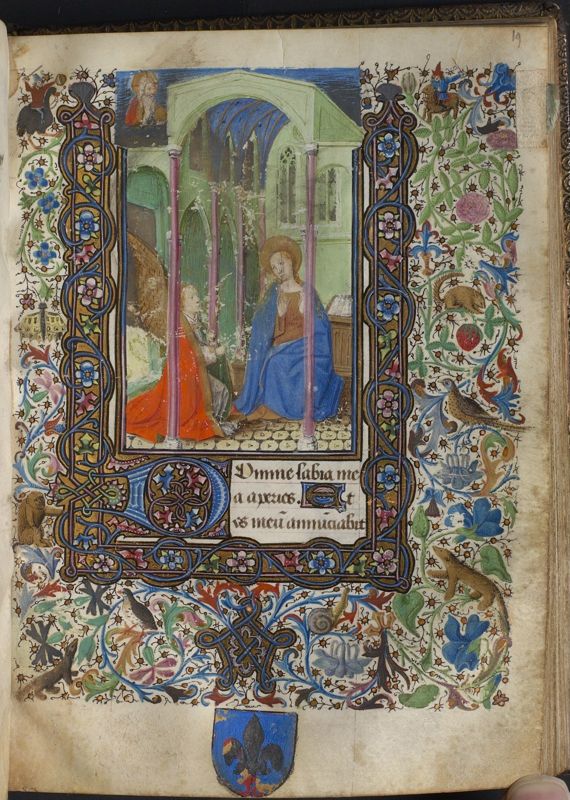 19
Domine labia me
a aperies. Et
os meū annūciabit